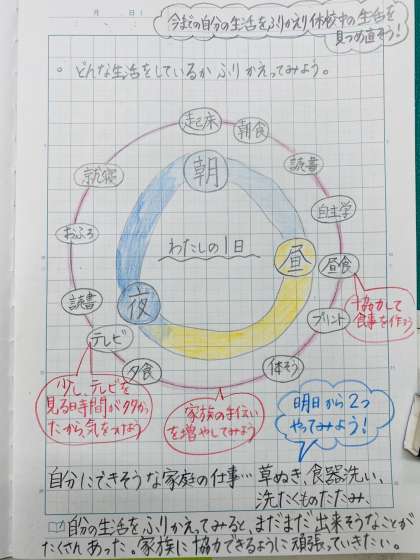 月 日(
今までの自分の生活をふりかえり休校中の生活を
見つめ直そう!
○ どんな生活をしているか ふりかえってみよう。
起床
朝食
読書
自主学
昼食
プリント
体そう
夕食
テレビ
読書
おふろ
就寝
朝
昼
夜
わたしの1日
協力して
食事を作ろう
少し、テレビを
見る時間が多か
たから、気をつけよう
家族の手伝い
を増やしてみよう
明日から2つ
やってみよう!
自分にできそうな家庭の仕事…草ぬき、食器洗い、
洗たくものたたみ、
自分の生活をふりかえてみると、まだまだ出来そうなことが
たくさんあった。家族に協力できるように頑張っていきたい。